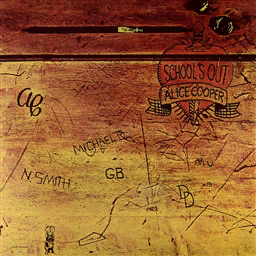 SCHOOL'S OUT
ALICE COOPER
AC
MICHAEL B.
N. SMITH
G.B.
DD